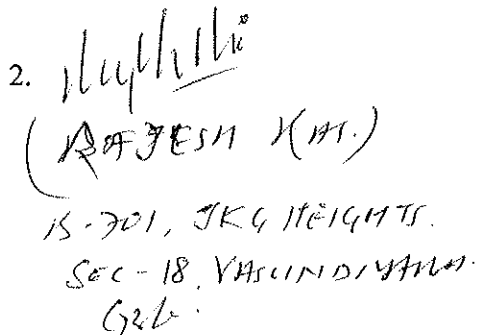 2.
(RAJESH
B-701, JKG HEIGHTS.
SEC-18, VASUNDHARA.
Gzb.